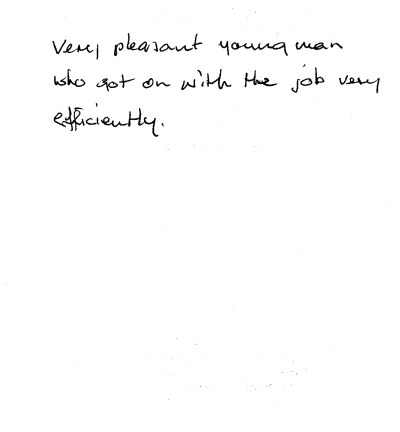 Very pleasant young man
who got on with the job very
efficiently.